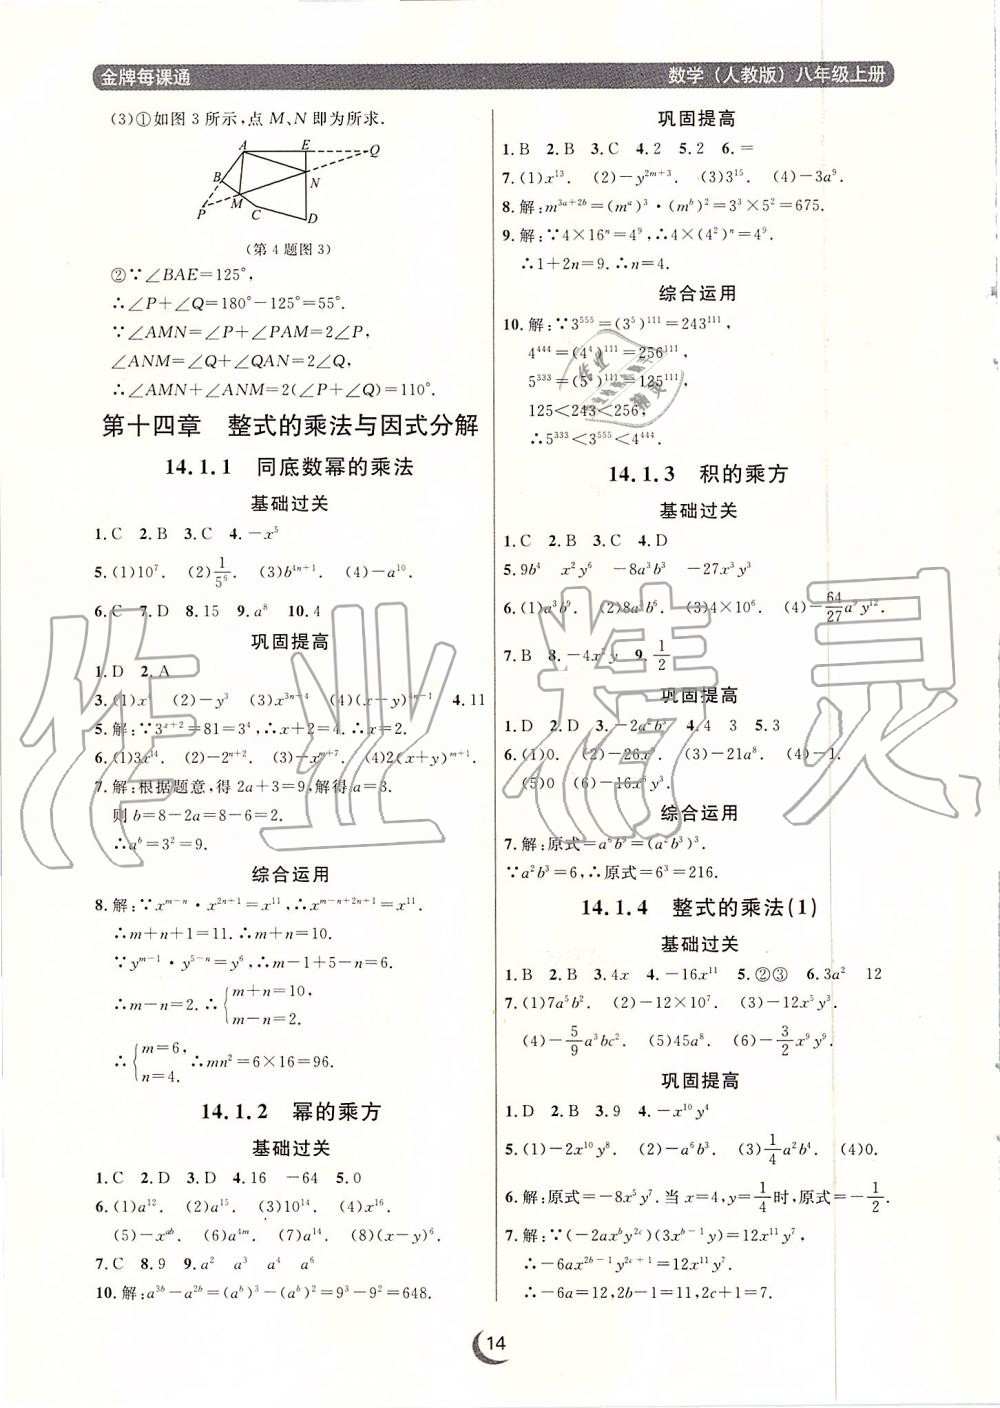 金牌每课通
数学（人教版）八年级上册
(3)①如图3所示,点M、N即为所求.
A E Q
B N
P M C D
(第4题图3)
②∵∠BAE=125°,
∴∠P+∠Q=180°-125°=55°.
∵∠AMN=∠P+∠PAM=2∠P,
∠ANM=∠Q+∠QAN=2∠Q,
∴∠AMN+∠ANM=2(∠P+∠Q)=110°.
第十四章 整式的乘法与因式分解
14.1.1 同底数幂的乘法
基础过关
1.C 2.B 3.C 4.-x⁵
5.(1)10⁷. (2)1/5⁶. (3)b⁴ⁿ⁺¹. (4)-a¹⁰.
6.C 7.D 8.15 9.a⁸ 10.4
巩固提高
1.D 2.A
3.(1)x⁴ (2)-y³ (3)x³ⁿ⁻⁴ (4)(x-y)⁴ⁿ⁻¹ 4.11
5.解:∵3ˣ⁺²=81=3⁴,∴x+2=4.∴x=2.
6.(1)3x¹⁴. (2)-2ⁿ⁺². (3)-xᵐ⁺⁷. (4)2(x+y)ᵐ⁺¹.
7.解:根据题意,得2a+3=9,解得a=3.
则b=8-2a=8-6=2.
∴aᵇ=3²=9.
综合运用
8.解:∵xᵐ⁻ⁿ·x²ⁿ⁺¹=x¹¹,∴xᵐ⁻ⁿ⁺²ⁿ⁺¹=x¹¹.
∴m+n+1=11.∴m+n=10.
∵yᵐ⁻¹·y⁵⁻ⁿ=y⁶,∴m-1+5-n=6.
∴m-n=2.∴{m+n=10, m-n=2.
∴{m=6, n=4. ∴mn²=6×16=96.
14.1.2 幂的乘方
基础过关
1.C 2.D 3.D 4.16 -64 5.0
6.(1)a¹². (2)a¹⁵. (3)10¹⁴. (4)x¹⁶.
(5)-xᵃᵇ. (6)a⁴ᵐ. (7)a¹⁴. (8)(x-y)⁶.
7.C 8.9 9.a² a³ a⁴ a⁶
10.解:a³ᵇ-a²ᵇ=(aᵇ)³-(aᵇ)²=9³-9²=648.
巩固提高
1.B 2.B 3.C 4.2 5.2 6.=
7.(1)x¹³. (2)-y²ᵐ⁺³. (3)3¹⁵. (4)-3a⁹.
8.解:m³ᵃ⁺²ᵇ=(mᵃ)³·(mᵇ)²=3³×5²=675.
9.解:∵4×16ⁿ=4⁹,∴4×(4²)ⁿ=4⁹.
∴1+2n=9.∴n=4.
综合运用
10.解:∵3⁵⁵⁵=(3⁵)¹¹¹=243¹¹¹,
4⁴⁴⁴=(4⁴)¹¹¹=256¹¹¹,
5³³³=(5³)¹¹¹=125¹¹¹,
125<243<256,
∴5³³³<3⁵⁵⁵<4⁴⁴⁴.
14.1.3 积的乘方
基础过关
1.C 2.B 3.C 4.D
5.9b⁴ x²y⁶ -8a³b³ -27x³y³
6.(1)a³b⁹. (2)8a³b⁶. (3)4×10⁶. (4)-64/27a⁹y¹².
7.B 8.-4x²y 9.1/2
巩固提高
1.D 2.D 3.-2a²b³ 4.4 3 5.3
6.(1)0. (2)-26x³. (3)-21a⁸. (4)-1.
(5)0 (6)-16x⁶y³.
综合运用
7.解:原式=a⁶b⁹=(a²b³)³.
∵a²b³=6,∴原式=6³=216.
14.1.4 整式的乘法(1)
基础过关
1.B 2.B 3.4x 4.-16x¹¹ 5.②③ 6.3a² 12
7.(1)7a⁵b². (2)-12×10⁷. (3)-12x⁵y³.
(4)-5/9a³bc². (5)45a⁸. (6)-3/2x⁹y⁹.
巩固提高
1.D 2.B 3.9 4.-x¹⁰y⁴
5.(1)-2x¹⁰y⁸. (2)-a⁶b³. (3)1/4a²b⁴. (4)0.
6.解:原式=-8x⁵y⁷.当x=4,y=1/4时,原式=-1/2.
7.解:∵(-2axᵇy²ᶜ)(3xᵇ⁻¹y)=12x¹¹y⁷,
∴-6ax²ᵇ⁻¹y²ᶜ⁺¹=12x¹¹y⁷.
∴-6a=12,2b-1=11,2c+1=7.
14
作业精灵
作业精灵